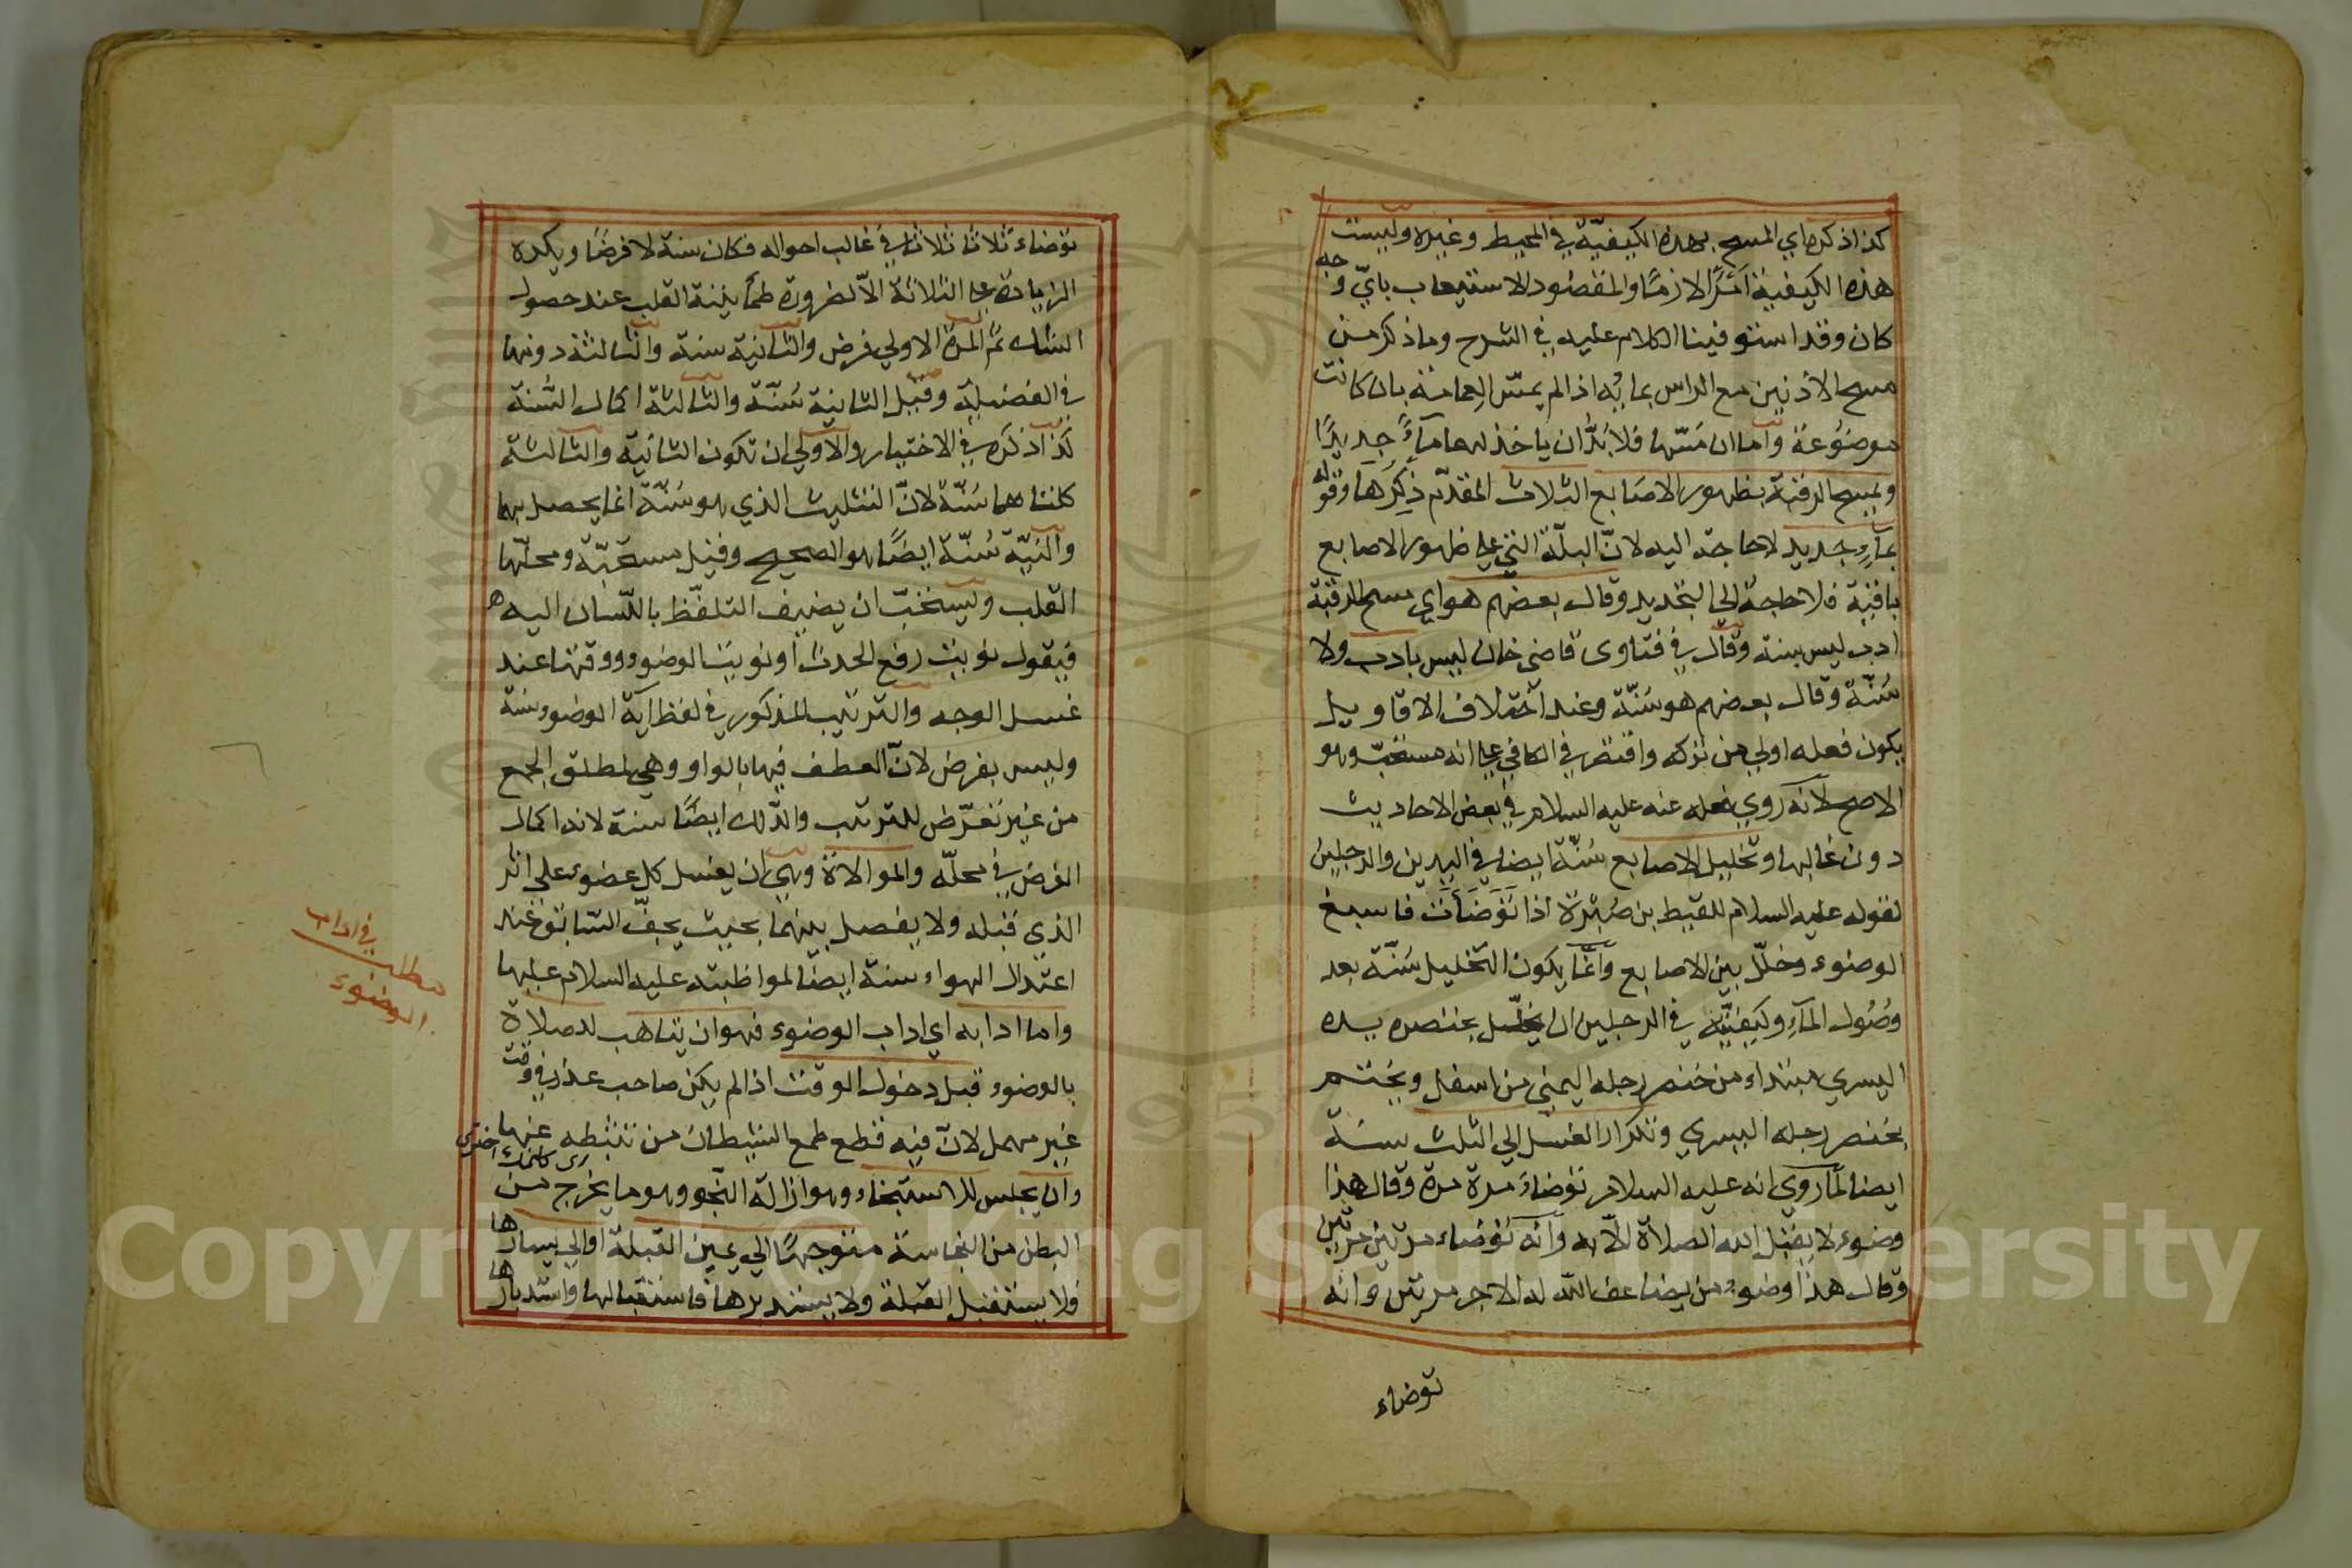 كذا ذكره اي المسح بهذه الكيفيّة في المحيط وغيره وليست
هذه الكيفية امرًا لازمًا والمقصود الاستيعاب بايّ وجه
كان وقد استوفينا الكلام عليه في الشرح وما ذكر من
مسح الاذنين مع الراس بمائه اذا لم يمسّ العمامة بان كانت
موضوعة واما ان مسّها فلا بُدّ ان ياخذ لهما مآءً جديدًا
ويمسح الرقبة بظهور الاصابع الثلاث المقدّم ذِكرَها وقوله
بمآءٍ جديد لا حاجة اليه لانّ البلّة التي على ظهور الاصابع
باقية فلا حاجة الي التجديد وقال بعضهم هو اي مسح الرقبة
ادب ليس بسنة وقال في فتاوى قاضي خان ليس بادب ولا
سُنّة وقال بعضهم هو سُنّة وعند اختلاف الاقاويل
يكون فعله اولي من تركه واقتصر في الكافي على انه مستحبّ وهو
الاصح لانه روي فعله عنه عليه السلام في بعض الاحاديث
دون غالبها وتخليل الاصابع سُنّة ايضا في اليدين والرجلين
لقوله عليه السلام للقيط بن صُبرة اذا تَوَضَأتَ فاسبغ
الوضوء وخلّل بين الاصابع وانّما يكون التخليل سُنّة بعد
وُصُول المآءِ وكيفيّته في الرجلين ان يخلّل بخنصره يده
اليسري مبتداء من خنصر رجله اليمني من اسفل ويختم
بخنصر رجله اليسري وتكرار الغسل الي الثلث سنة
ايضا لما روي انه عليه السلام توضاءَ مرة مرة وقال هذا
وضوء لا يقبل الله الصلاة الّا به وانه توضاء مرتين مرتين
وقال هذا وضوء من يضاعف الله له الاجر مرتين وانه
توضاء
توضاء ثلاثا ثلاثا في غالب احواله فكان سنة لا فرضًا ويكره
الزيادة على الثلاثة الّا لضرورة طمأنينة القلب عند حصول
الشك ثم المرة الاولي فرض والثانية سنة والثالثة دونها
في الفضيلة وقيل الثانية سُنّة والثالثة اكمال السُّنة
كذا ذكره في الاختيار والاولي ان تكون الثانية والثالثة
كلتاهما سُنّة لانّ التثليث الذي هو سُنّة انما يحصل بهما
والنيّة سُنّة ايضًا هو الصحيح وقيل مستحبّة ومحلّها
القلب ويستحبّ ان يضيف التلفّظ باللّسان اليه
فيقول نويت رفع الحدث او نويت الوضوء ووقتها عند
غسل الوجه والترتيب المذكور في لفظ آية الوضوء سنة
وليس بفرض لانّ العطف فيها بالواو وهي لمطلق الجمع
من غير تعرّض للترتيب والدّلك ايضًا سنة لانه اكمال
الفرض في محلّه والموالاة وهي ان يغسل كل عضو على اثر
الذي قبله ولا يفصل بينهما بحيث يجفّ السّابق عند
اعتدال الهواء سنة ايضًا لمواظبته عليه السلام عليها
واما ادابه اي اداب الوضوء فهو ان يتاهب للصلاة
بالوضوء قبل دخول الوقت اذا لم يكن صاحب عذر في وقت
غير مهمل لانّ فيه قطع طمع الشيطان من تثبيطه عنها
وان يجلس للاستنجاء وهو ازالة النّجو وهو ما يخرج من
البطن من النجاسة متوجهًا الي يمين القبلة او الي يسارها
فلا يستقبل القبلة ولا يستدبرها فاستقبالها واستدبارها
مطلب
في اداب
الوضوء
Copyright © King Saud University
1957